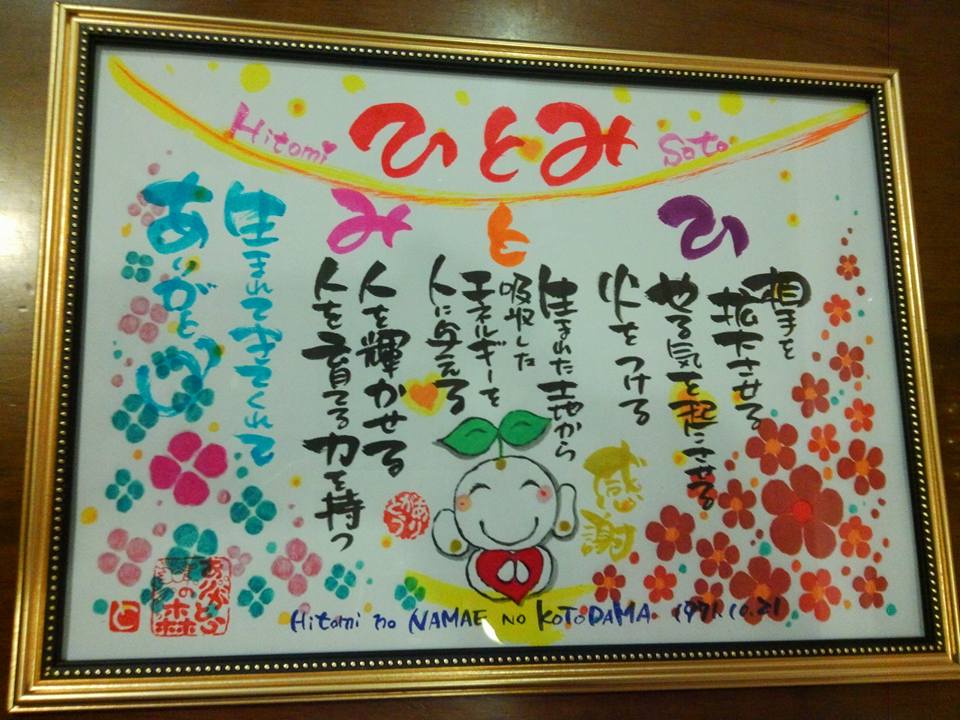 Hitomi ひとみ Sato
ひ
相手を
拡大させる
やる気を起こさせる
火をつける
と
生まれた土地から
吸収した
エネルギーを
人に与える
み
人を輝かせる
人を育てる力を持つ
生まれてきてくれて
ありがとう
感謝
ありがとう
の森
Hitomi no NAMAE NO KOTODAMA 1991.10.21